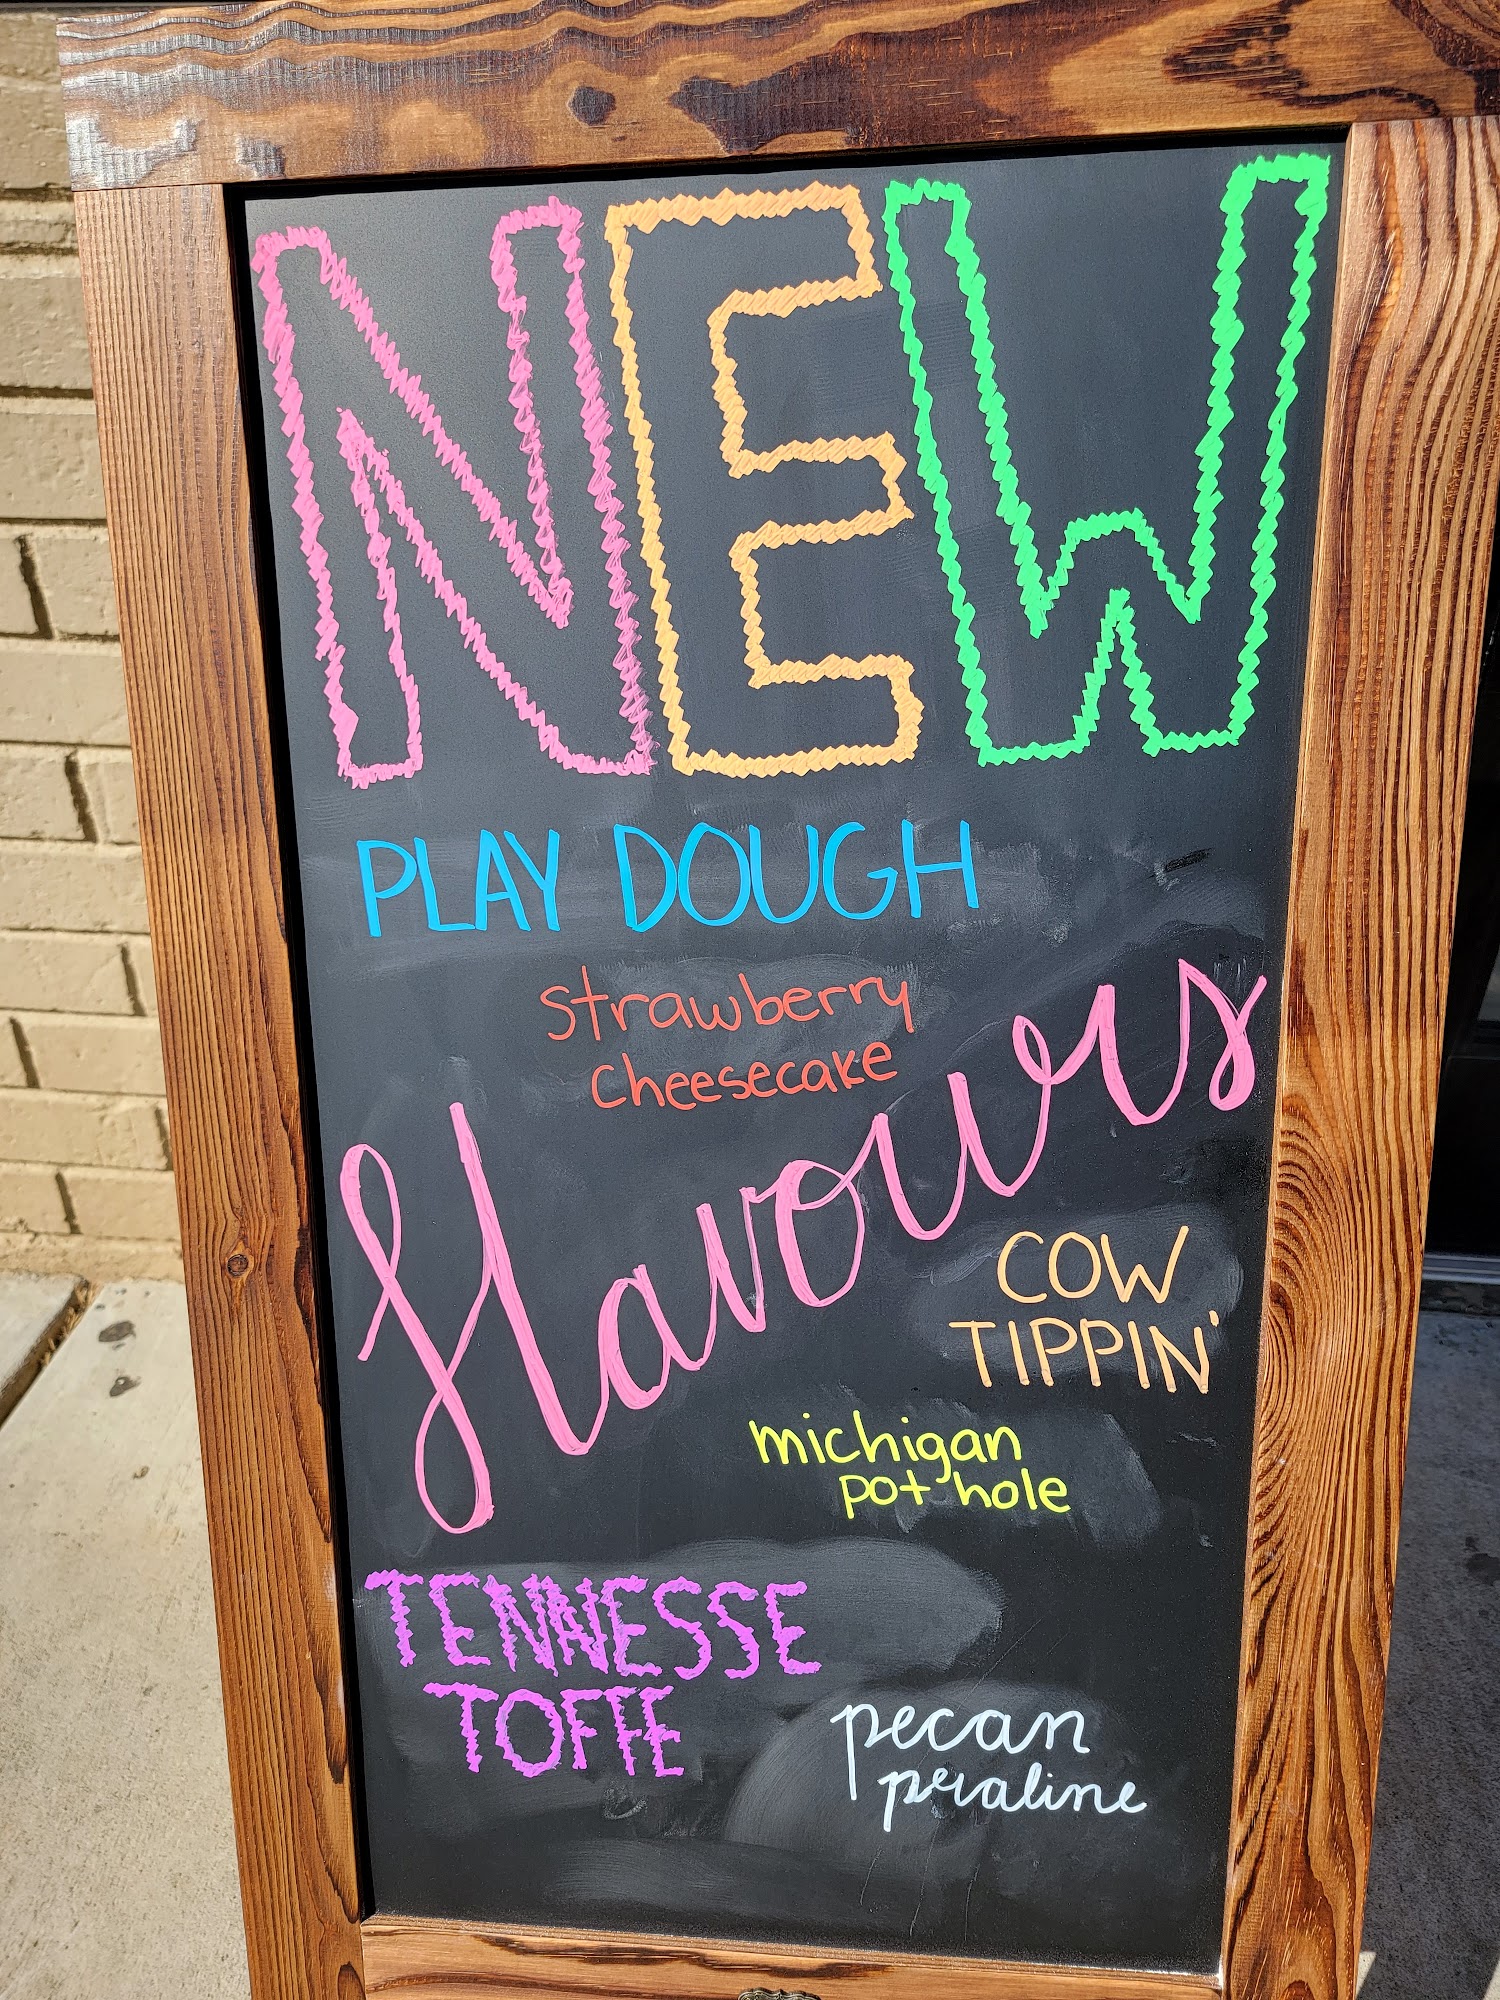 NEW
PLAY DOUGH
strawberry
cheesecake
flavours
COW
TIPPIN'
michigan
pot hole
TENNESSE
TOFFE
pecan
praline